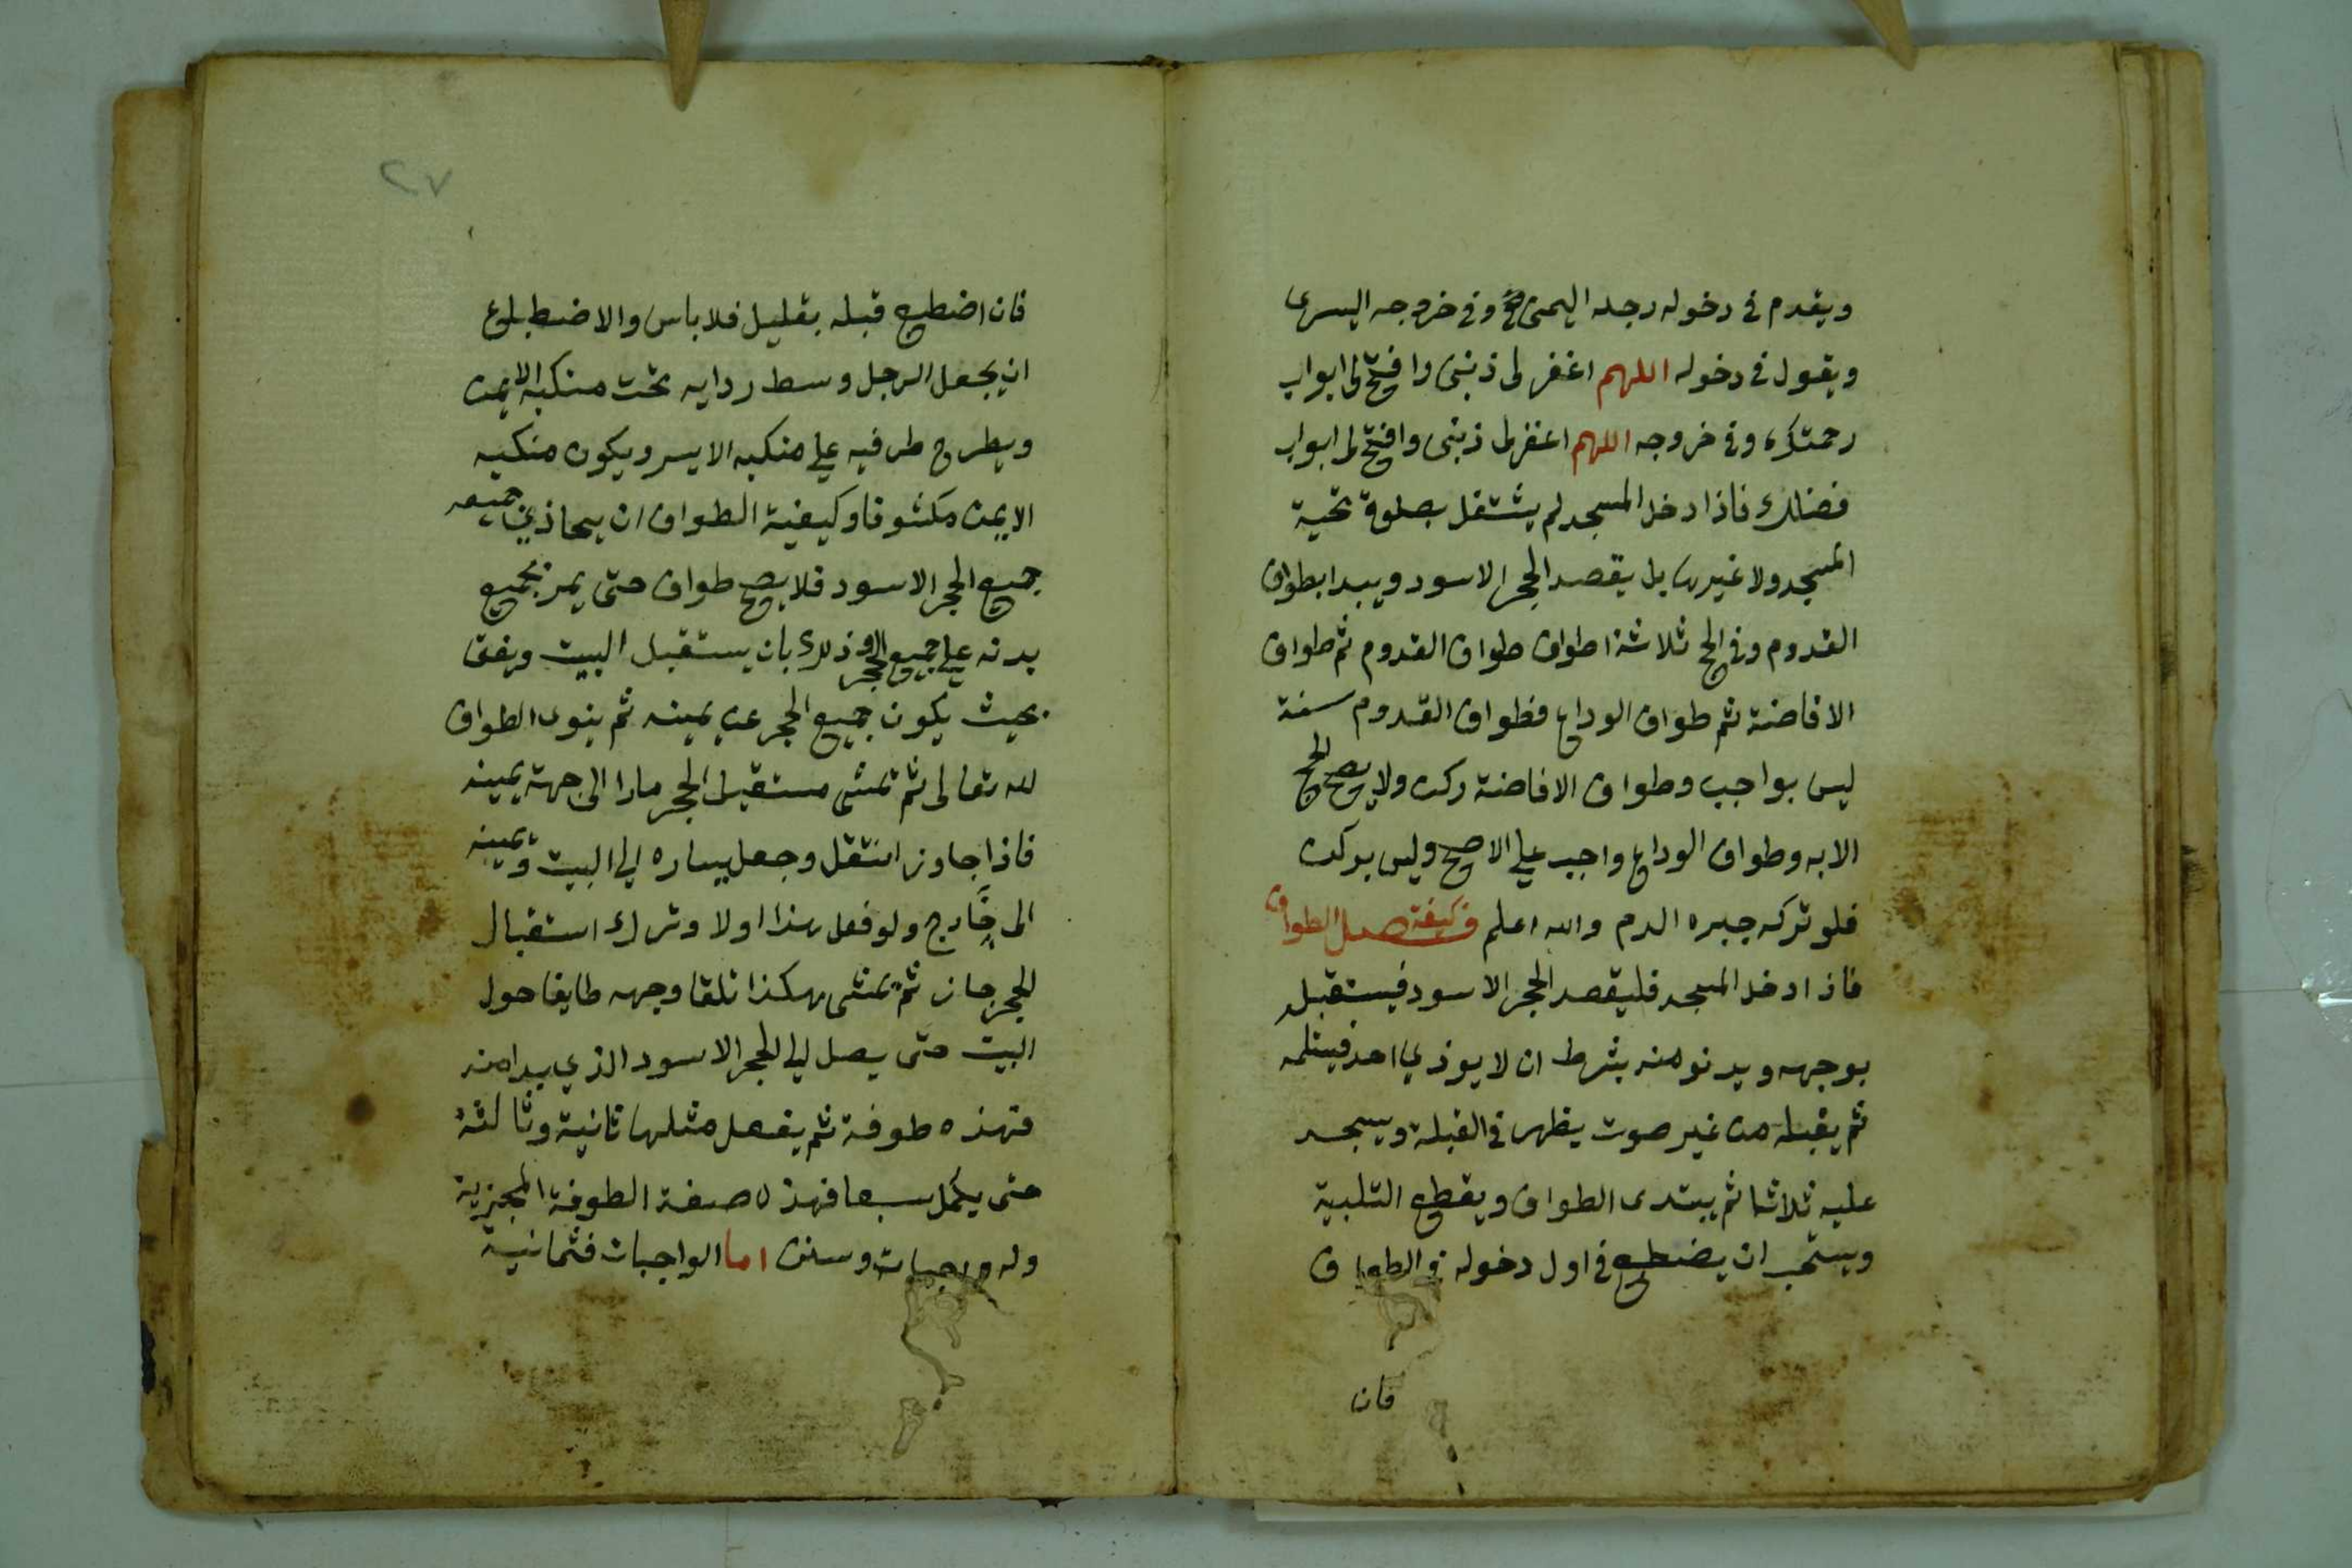 ويقدم في دخوله رجله اليمنى وفي خروجه اليسرى
ويقول في دخوله اللهم اغفر لي ذنبي وافتح لي ابواب
رحمتك وفي خروجه اللهم اغفر لي ذنبي وافتح لي ابواب
فضلك فاذا دخل المسجد لم يشتغل بصلوة تحية
المسجد ولا غيرها بل يقصد الحجر الاسود ويبدا بطواف
القدوم وفي الحج ثلاثة اطواف طواف القدوم ثم طواف
الافاضة ثم طواف الوداع فطواف القدوم سنة
ليس بواجب وطواف الافاضة ركن ولا يصح الحج
الا به وطواف الوداع واجب على الاصح وليس بركن
فلو تركه جبره الدم والله اعلم فصل في كيفية الطواف
فاذا دخل المسجد فليقصد الحجر الاسود فيستقبل
بوجهه ويدنو منه بشرط ان لا يوذي احد فيستلمه
ثم يقبله من غير صوت يظهر في القبلة ويسجد
عليه ثلاثا ثم يبتدى الطواف ويقطع التلبية
ويستحب ان يضطبع في اول دخوله في الطواف
فان
٢٧
فان اضطبع قبله بقليل فلا باس والاضطباع
ان يجعل الرجل وسط ردايه تحت منكبه الايمن
ويطرح طرفيه على منكبه الايسر ويكون منكبه
الايمن مكشوفا وكيفية الطواف ان يحاذي جميعه
جميع الحجر الاسود فلا يصح طواف حتى يمر بجميع
بدنه على جميع الحجر وذلك بان يستقبل البيت ويقف
بحيث يكون جميع الحجر عن يمينه ثم ينوى الطواف
لله تعالى ثم تمشى مستقبل الحجر مارا الى جهة يمينه
فاذا جاوز انتقل وجعل يساره الى البيت ويمينه
الى خارج ولو فعل هذا اولا وترك استقبال
الحجر جاز ثم تمشى هكذا تلقا وجهه طايفا حول
البيت حتى يصل الى الحجر الاسود الذي بدا منه
فهذه طوفة ثم يفعل مثلها ثانية وثالثة
حتى يكمل سبعا فهذه صفة الطوفة المجزية
وله واجبات وسنن اما الواجبات فثمانية